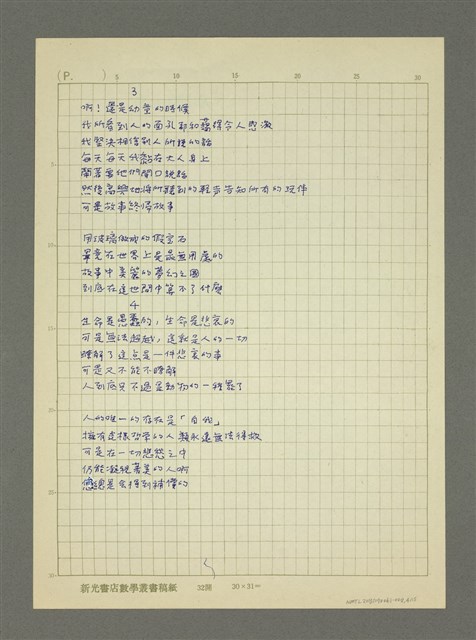 (P.      )
5
10
15
20
25
30
3
啊！還是幼童的時候
我所看到人的面孔都和藹得令人感激
我堅決相信別人所說的話
每天每天我黏在大人身上
鬧著要他們開口說話
然後高興地將所聽到的輕步告知所有的玩伴
可是故事終歸故事
用玻璃做成的假寶石
畢竟在世界上是最無用處的
故事中美麗的夢幻之國
到底在這世間中算不了什麼
4
生命是愚蠢的，生命是悲哀的
可是無法超越，這就是人的一切
瞭解了這点是一件悲哀的事
可是又不能不瞭解
人到底只不過是動物的一種罷了
人的唯一的存在是「自我」
擁有這樣哲學的人類永遠無法得救
可是在一切悲愁之中
仍能凝視著美的人啊
您總是會得到補償的
新光書店數學叢書稿紙
32開
30×31＝